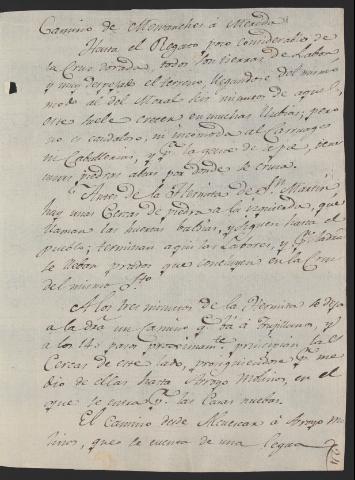 Camino de Montanches á Merida
Hasta el Regato poco considerable de
la Cruz dorada, todos son tierras de Labor
y muy derecho el terreno, llegandose del mismo
modo al del Moral seis minutos de aquel,
este suele crecer en muchas lluvias; pero
no es caudaloso, ni incomoda al Carruage
ni Caballerias, y pª la gente de a pie, tiene
unas piedras altas por donde se cruza.
Antes de la Hermita de Sn Martin
hay unas Cercas de piedra a la izquierda, que
llaman las huertas baldias, y siguen hasta el
pueblo; terminan aqui las Labores, y pr
se llevan prados que concluyen en la
del mismo Sto
A los tres minutos de la Hermita se deja
a la dra un Camino q va á Trujillano, y
a los 140 pasos proximamte principian las
Cercas de este lado, prosiguiendose pr me
dio de ellas hasta Arroyo Molinos, en el
que se entra pr las Casas nuevas.
El Camino desde Alcuescar á Arroyo Mo
linos, que se cuenta de una legua